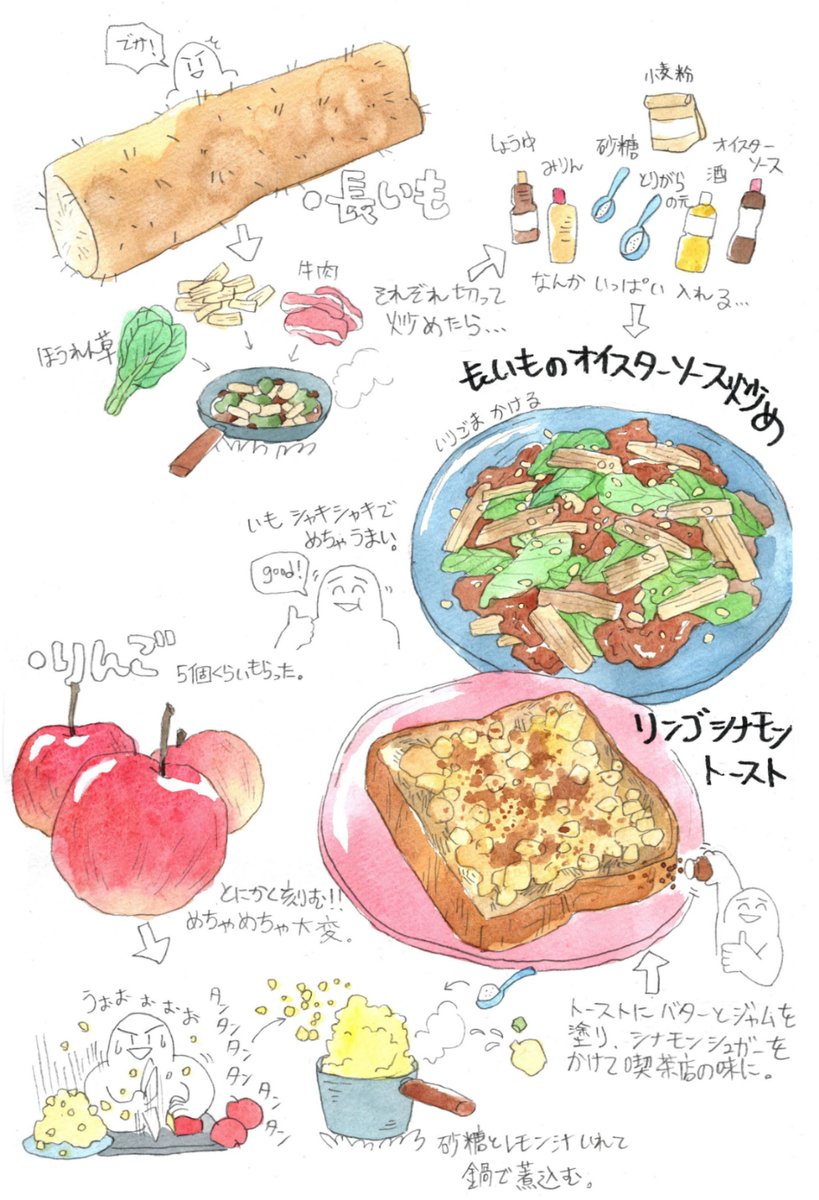 でか!
・長いも
牛肉
ほうれん草
それぞれ切って
炒めたら…
小麦粉
しょうゆ
みりん
砂糖
とりがら
の元
酒
オイスター
ソース
なんか いっぱい 入れる…
長いものオイスターソース炒め
いりごま かける
いも シャキシャキで
めちゃうまい。
good!
・りんご
5個くらいもらった。
リンゴシナモン
トースト
とにかく刻む!!
めちゃめちゃ大変。
うおぉぉぉぉ
タン
タン
タン
タン
タン
タン
砂糖とレモン汁いれて
鍋で煮込む。
トーストにバターとジャムを
塗り、シナモンシュガーを
かけて喫茶店の味に。